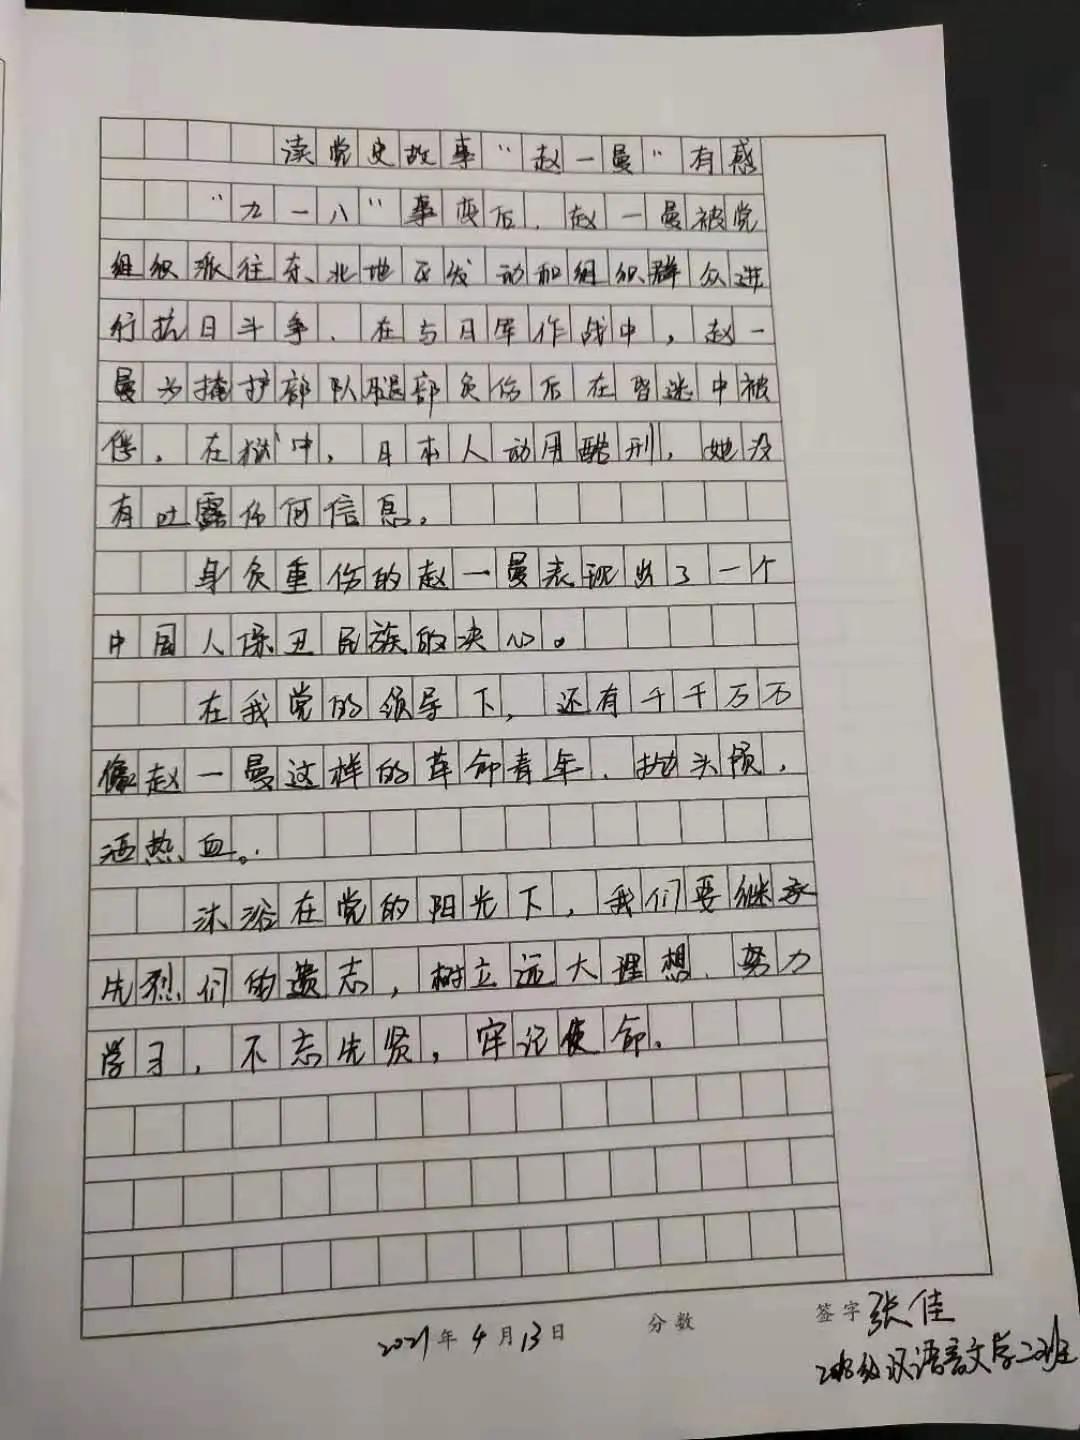 读党史故事“赵一曼”有感
“九一八”事变后，赵一曼被党
组织派往东北地区发动和组织群众进
行抗日斗争、在与日军作战中，赵一
曼为掩护部队腿部负伤后在昏迷中被
俘，在狱中，日本人动用酷刑，她没
有吐露任何信息。
身负重伤的赵一曼表现出了一个
中国人保卫民族的决心。
在我党的领导下，还有千千万万
像赵一曼这样的革命青年、抛头颅，
洒热血。
沐浴在党的阳光下，我们要继承
先烈们的遗志，树立远大理想、努力
学习，不忘先贤，牢记使命。
2021年4月13日 分数 签字 张佳
级汉语言文学二班